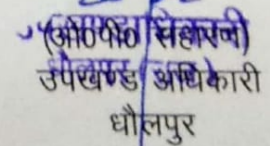 (ओ०पी० सहारण)
उपखण्ड अधिकारी
धौलपुर